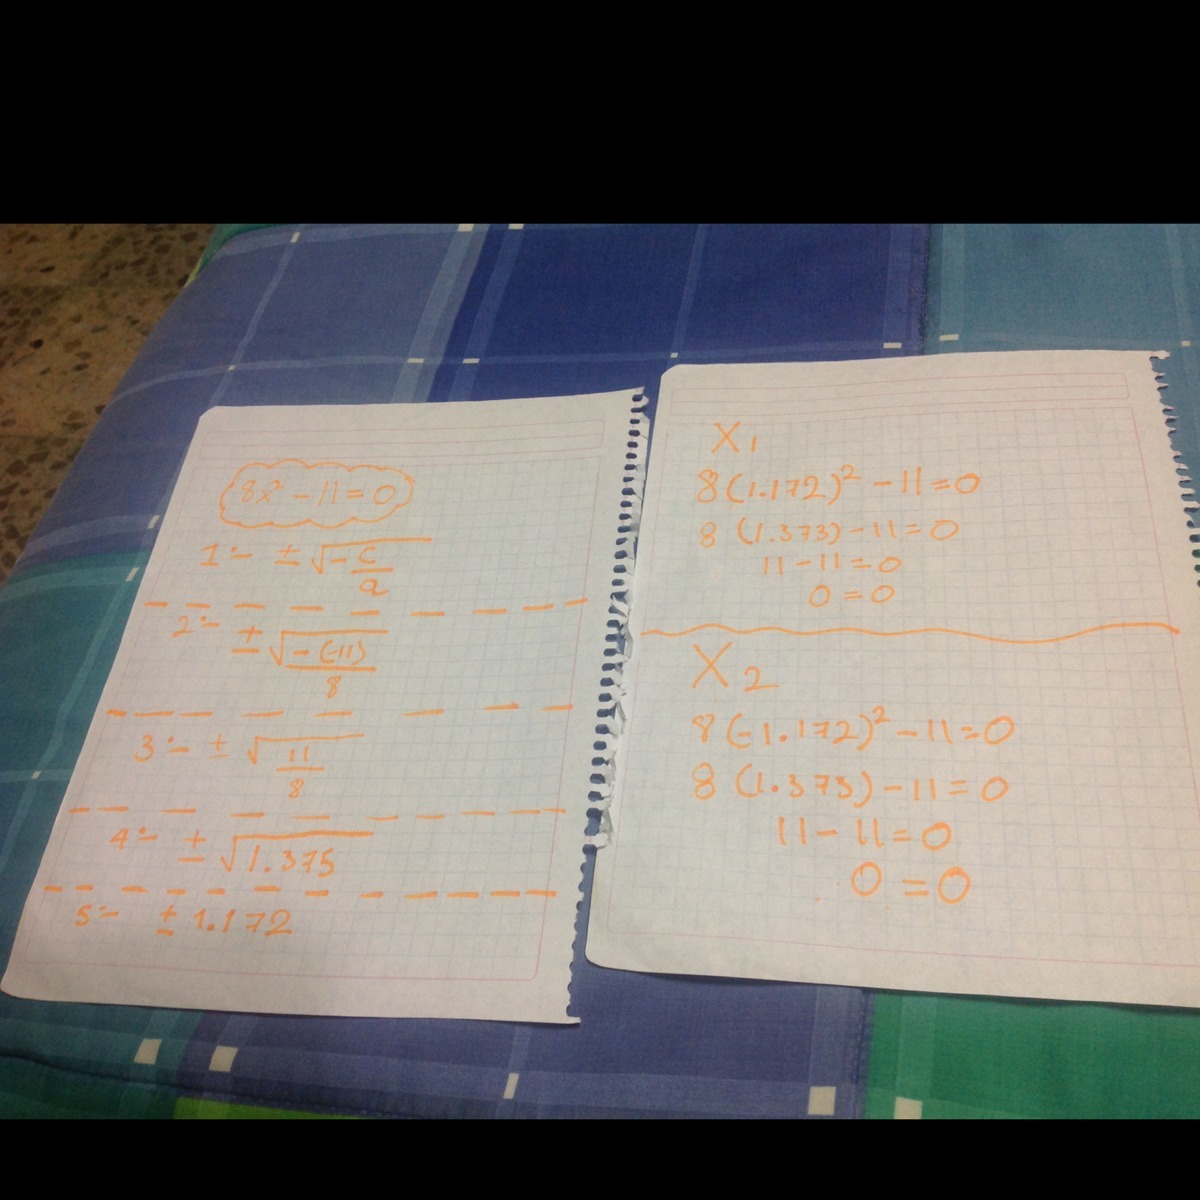 8x² - 11 = 0
1.- ± √-c/a
2.- ± √-(-11)/8
3.- ± √11/8
4.- ± √1.375
5.- ± 1.172
X₁
8(1.172)² - 11 = 0
8 (1.373) - 11 = 0
11 - 11 = 0
0 = 0
X₂
8(-1.172)² - 11 = 0
8 (1.373) - 11 = 0
11 - 11 = 0
0 = 0